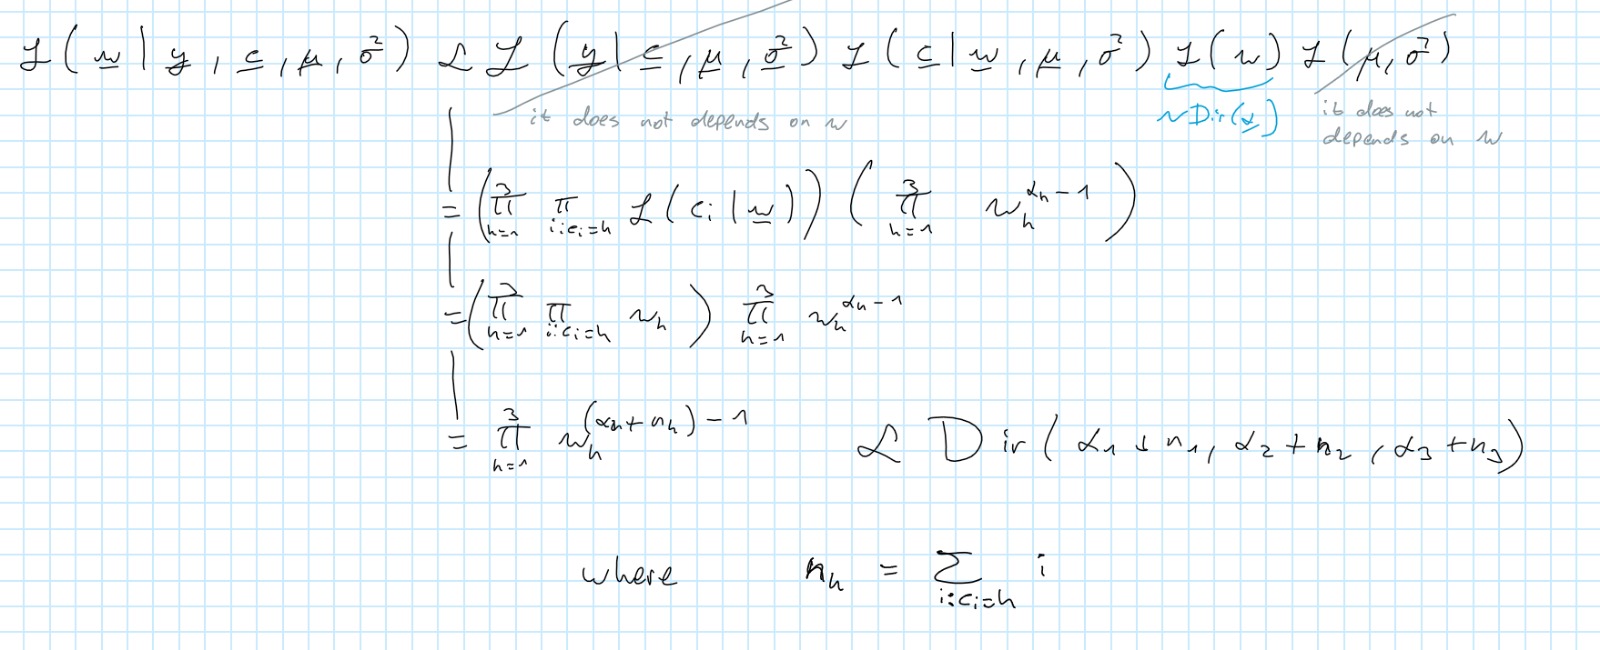 ℒ(w̲ | y̲, c̲, μ̲, σ̲²) ∝ ℒ(y̲ | c̲, μ̲, σ̲²) ℒ(c̲ | w̲, μ̲, σ²) ℒ(w) ℒ(μ, σ²)
it does not depends on w
~Dir(α̲)
it does not
depends on w
= (∏_{h=1}^{3} ∏_{i:c_i=h} ℒ(c_i | w̲)) (∏_{h=1}^{3} w_h^{α_h - 1})
= (∏_{h=1}^{3} ∏_{i:c_i=h} w_h) ∏_{h=1}^{3} w_h^{α_h - 1}
= ∏_{h=1}^{3} w_h^{(α_h + n_h) - 1} ∝ Dir(α_1 + n_1, α_2 + n_2, α_3 + n_3)
where n_h = ∑_{i:c_i=h} i